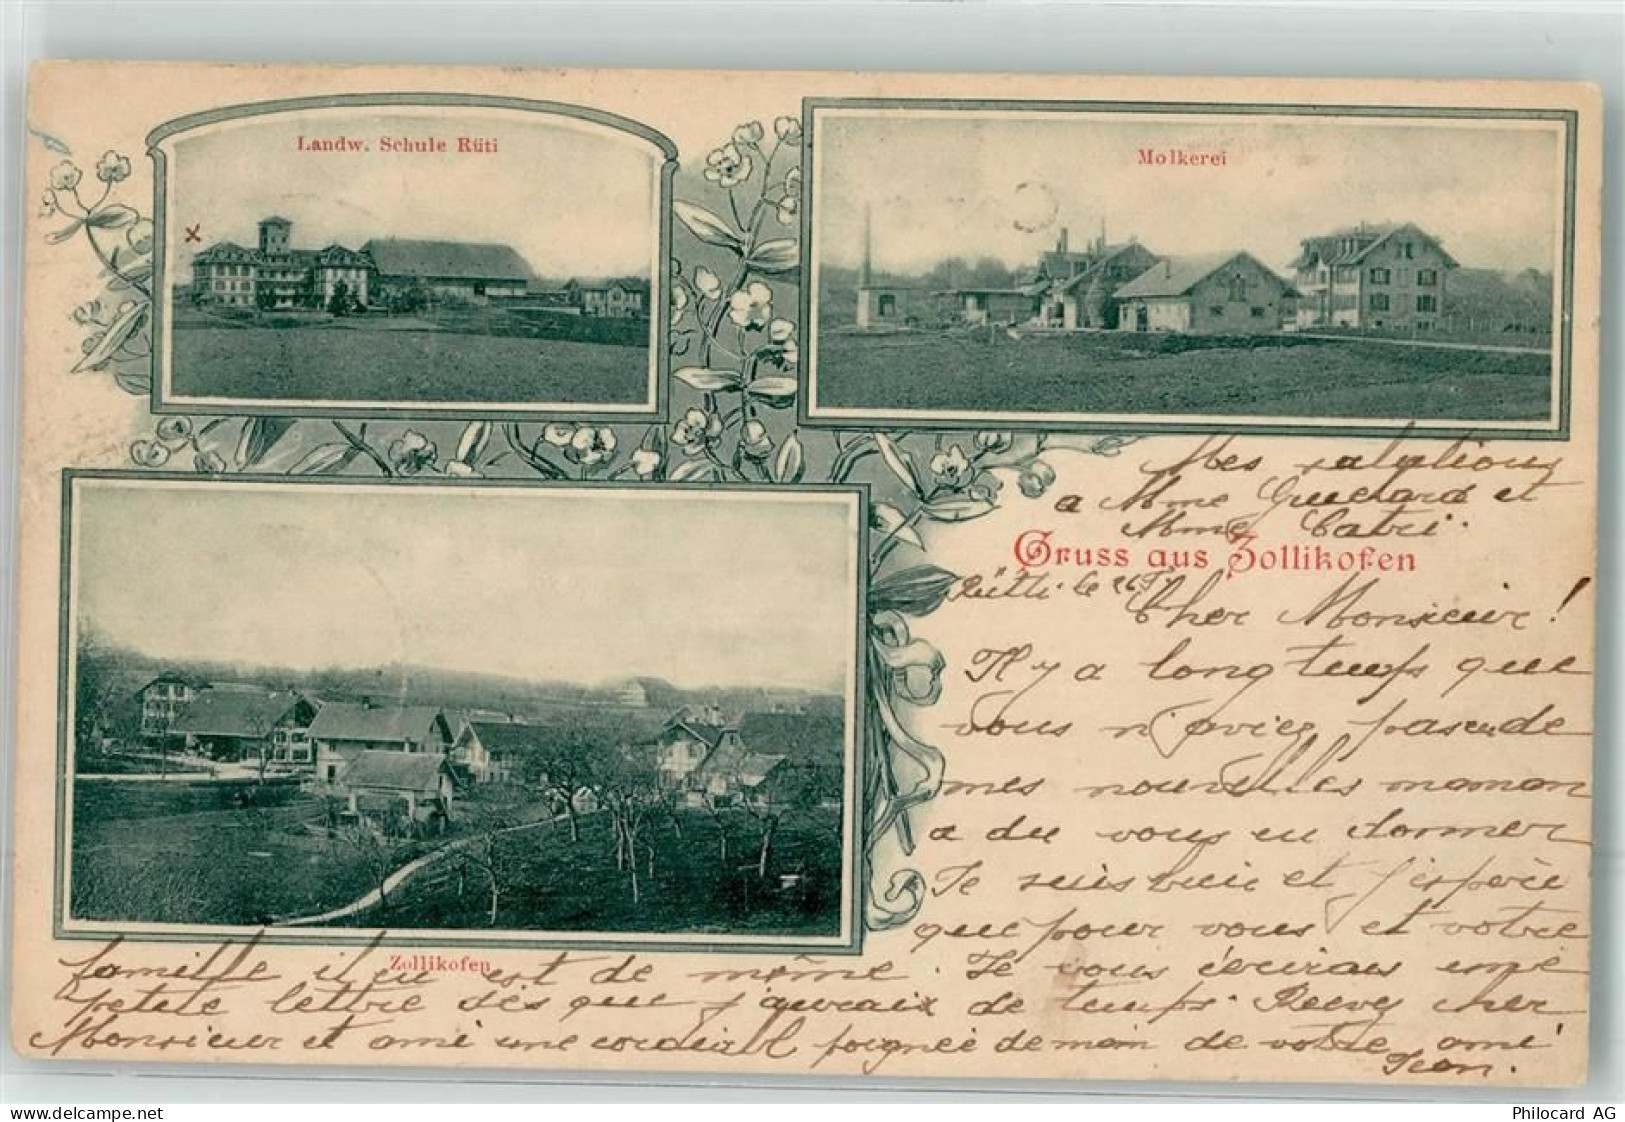 Landw. Schule Rüti
Molkerei
x
Mes salutions
a Mme et
Mme
Gruss aus Zollikofen
Rütti le 26
Cher Monsieur!
Il y a long temps que
vous n'aviez pas eu de
mes nouvelles maman
a du vous en donner
Je suis bien et j'espère
que pour vous et votre
Zollikofen
famille il en est de même. Je vous écrirais une
petite lettre dès que j'aurais de temps. Recevez cher
Monsieur et ami une cordiale poignée de main de votre ami
Jean.
www.delcampe.net
Philocard AG